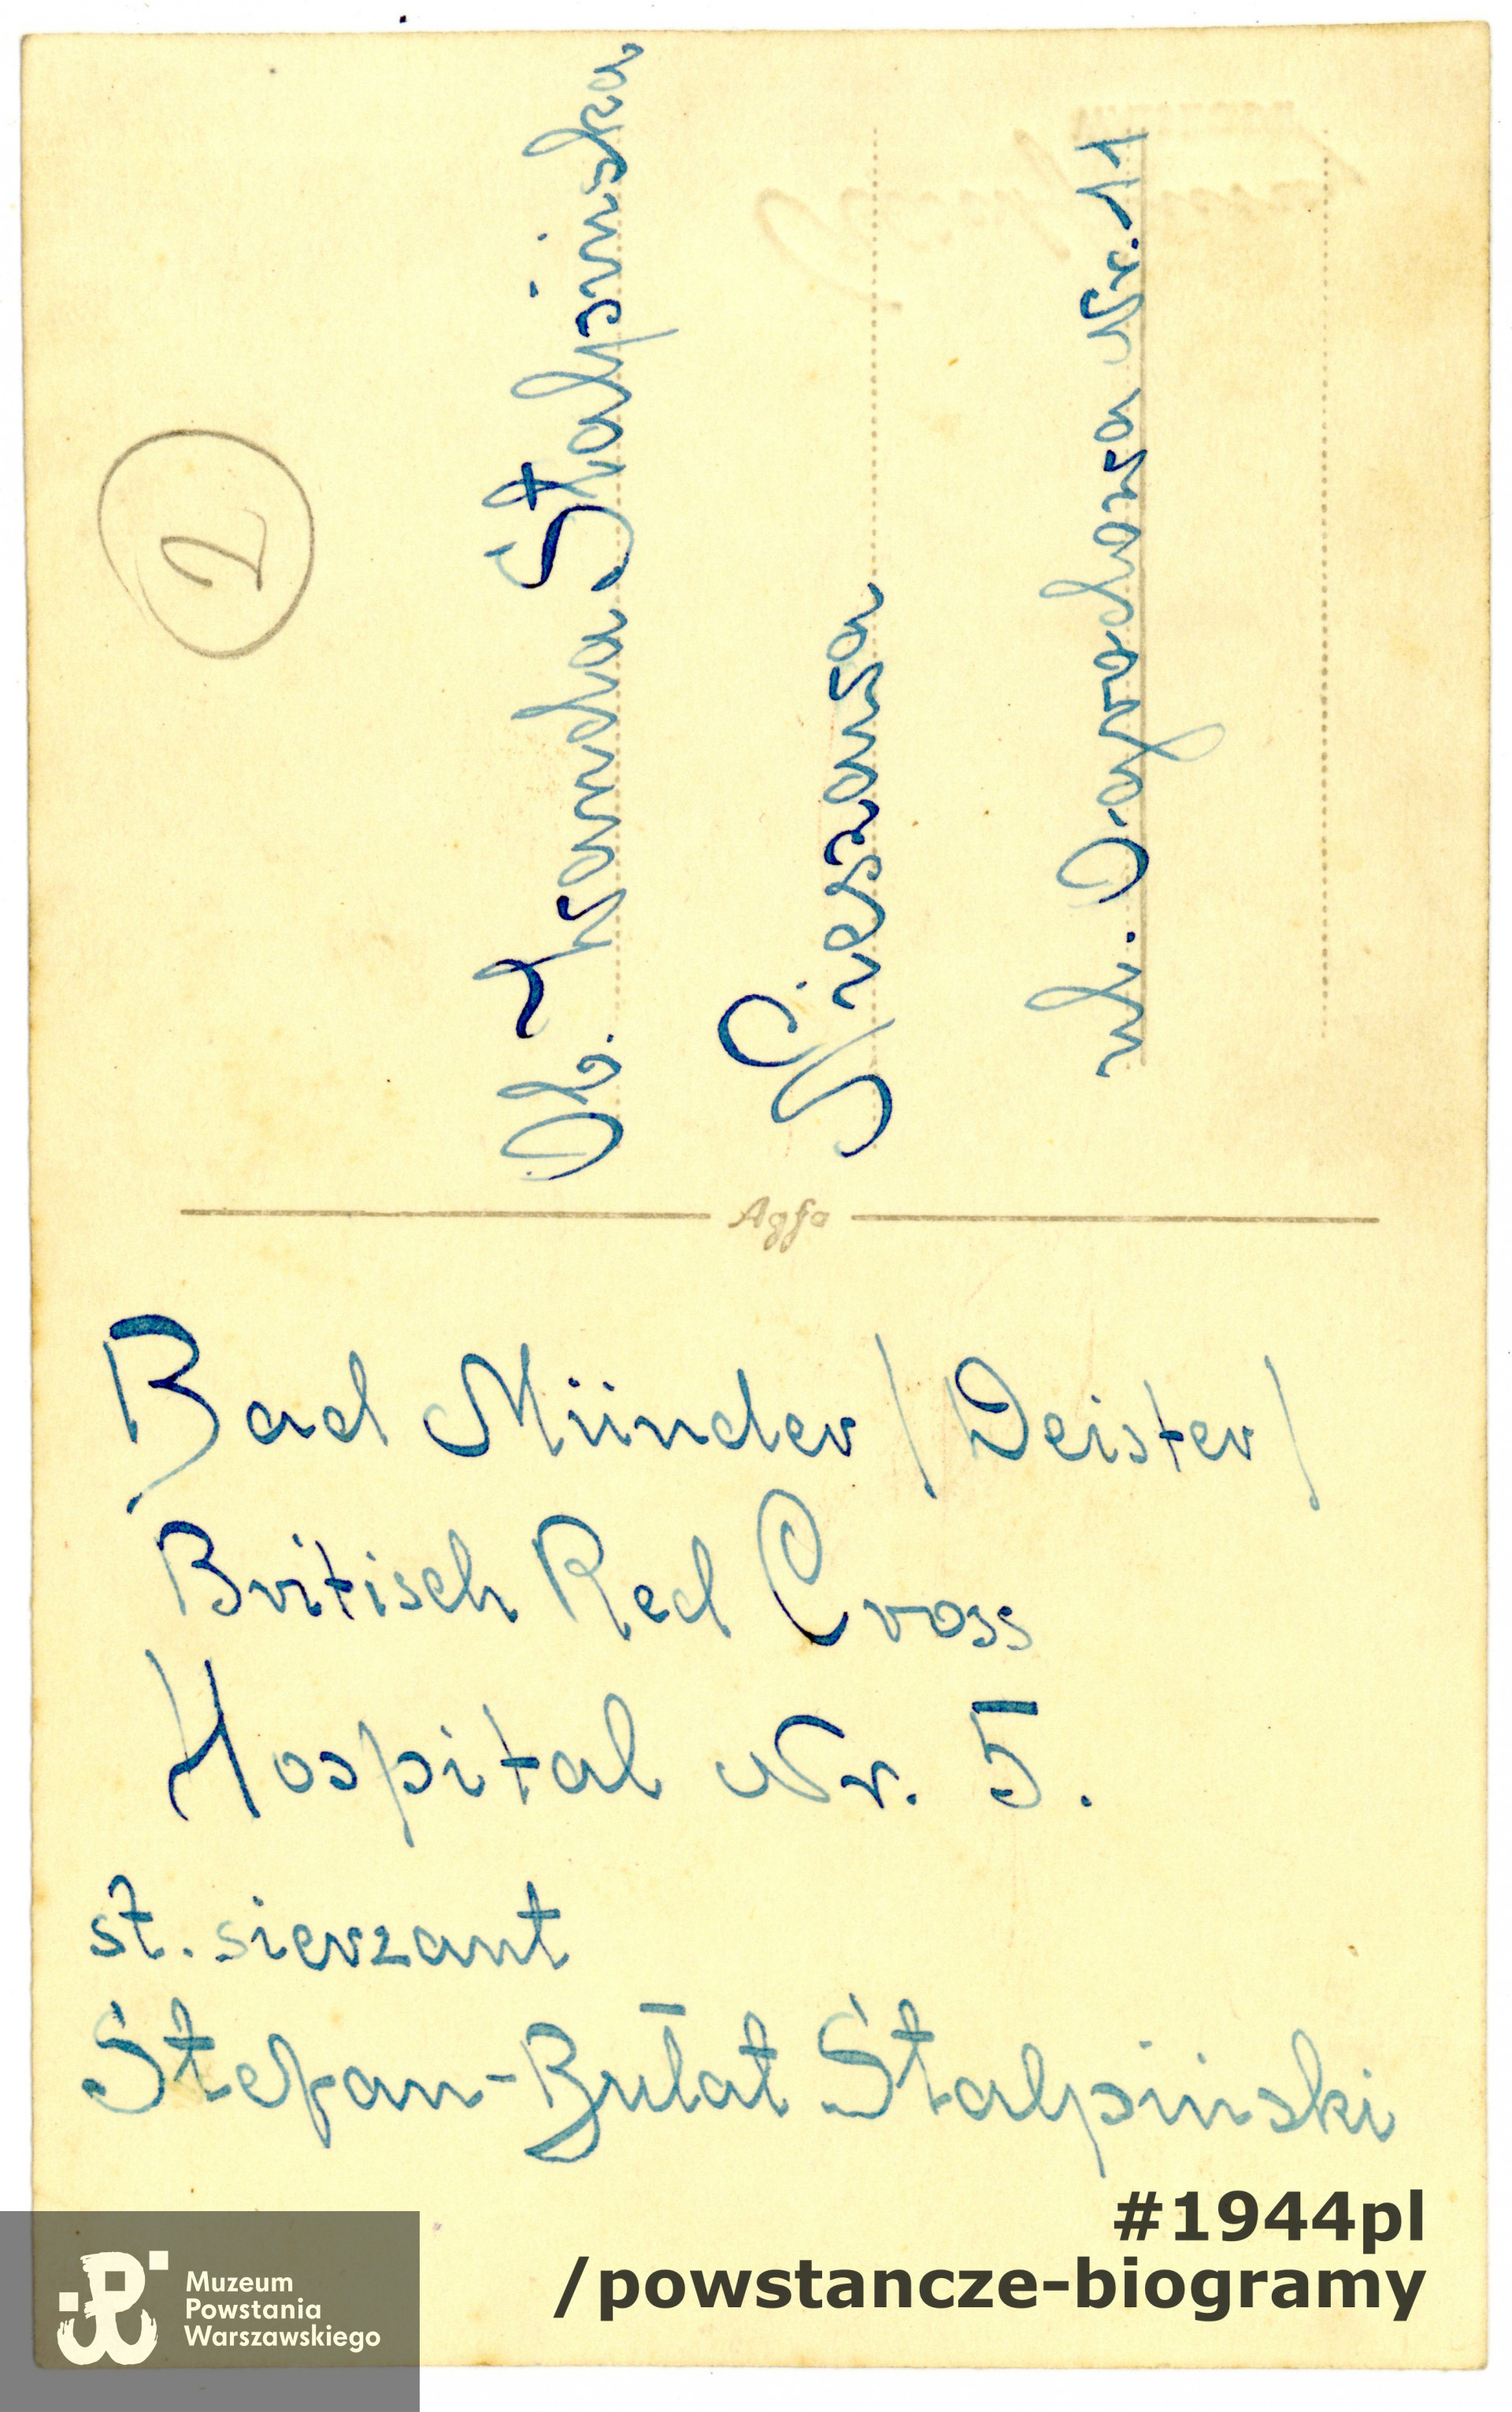 2
Ob. Wanda Stalpinska
Nieszawa
ul. Ogrodowa Nr. 11
Agfa
Bad Münder /Deister/
Britisch Red Cross
Hospital Nr. 5.
st. sierzant
Stefan-Bułat Stalpiński
#1944pl
/powstancze-biogramy
Muzeum
Powstania
Warszawskiego